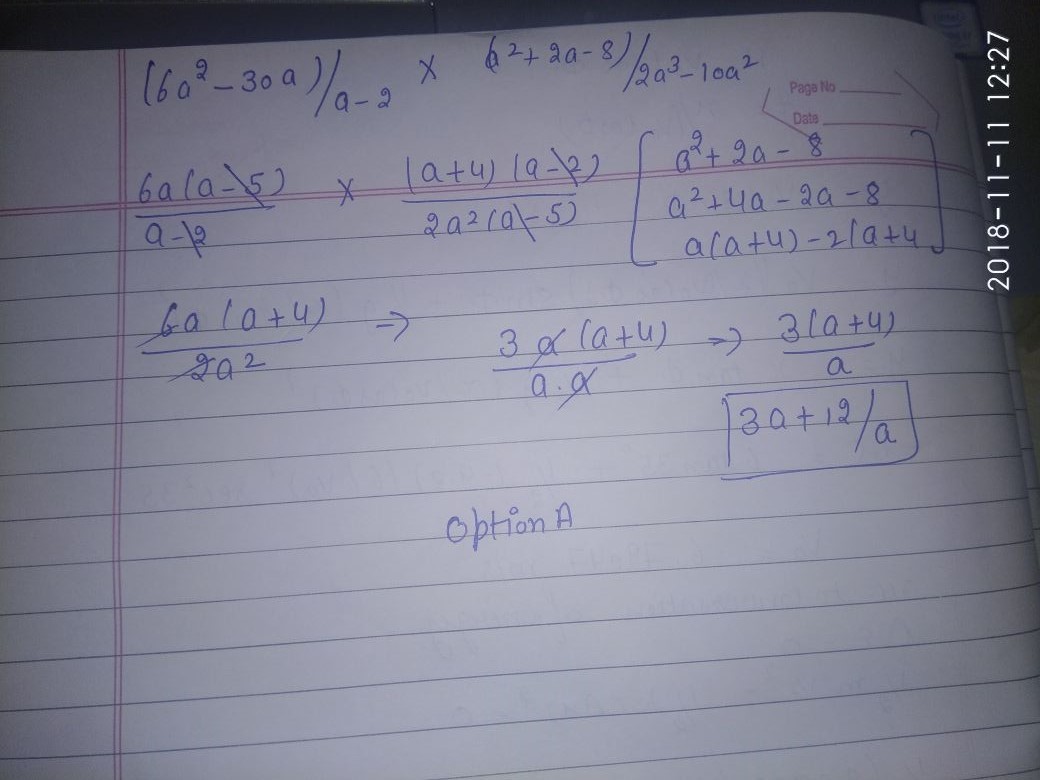 (6a² - 30a)/a-2 × (a² + 2a - 8)/2a³ - 10a²
Page No
Date
6a(a-5)/a-2 × (a+4)(a-2)/2a²(a-5) [a² + 2a - 8
a² + 4a - 2a - 8
a(a+4) - 2(a+4]
6a(a+4)/2a² → 3a(a+4)/a.a → 3(a+4)/a
3a+12/a
Option A
2018-11-11 12:27